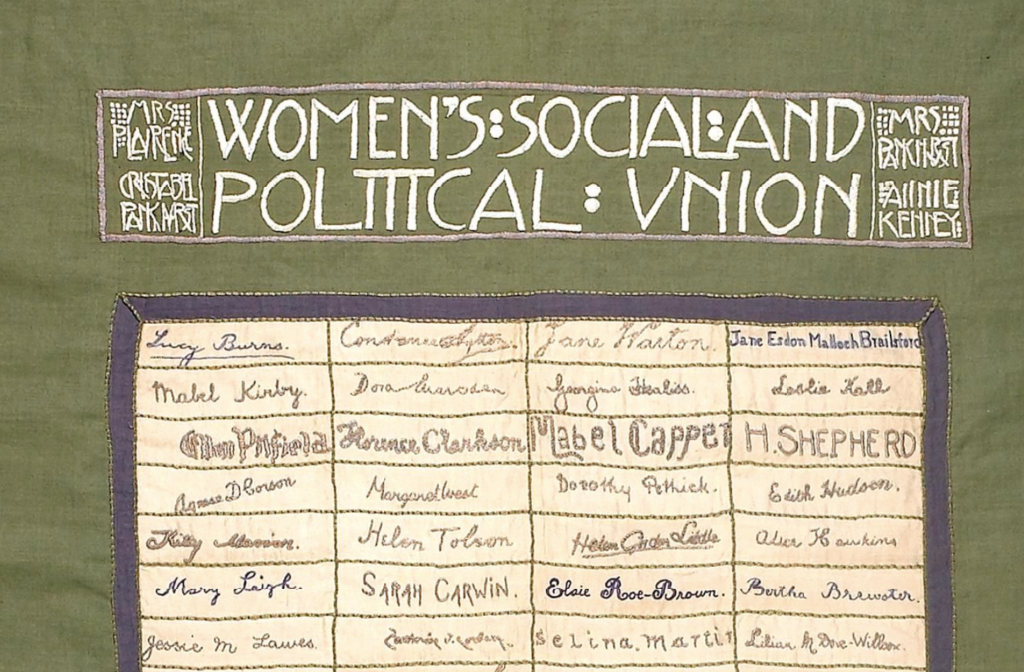 MRS
P. LAWRENCE
CHRISTABEL
PANKHURST
WOMEN'S:SOCIAL:AND
POLITICAL : VNION
MRS
PANKHURST
ANNIE
KENNEY
Lucy Burns. Constance Lytton. Jane Warton. Jane Esdon Malloch Brailsford
Mabel Kirby. Dora Georgina Healiss. Leslie Hall
Ellen Pitfield Florence Clarkson Mabel Capper H. SHEPHERD
Corson Margaret West Dorothy Pethick. Edith Hudson.
Kitty Marion. Helen Tolson Helen Liddle Alice Hawkins
Mary Leigh. SARAH CARWIN. Elsie Roe-Brown. Bertha Brewster.
Jessie M Lawes. Selina. Martin Lilian M Dove-Willcox.